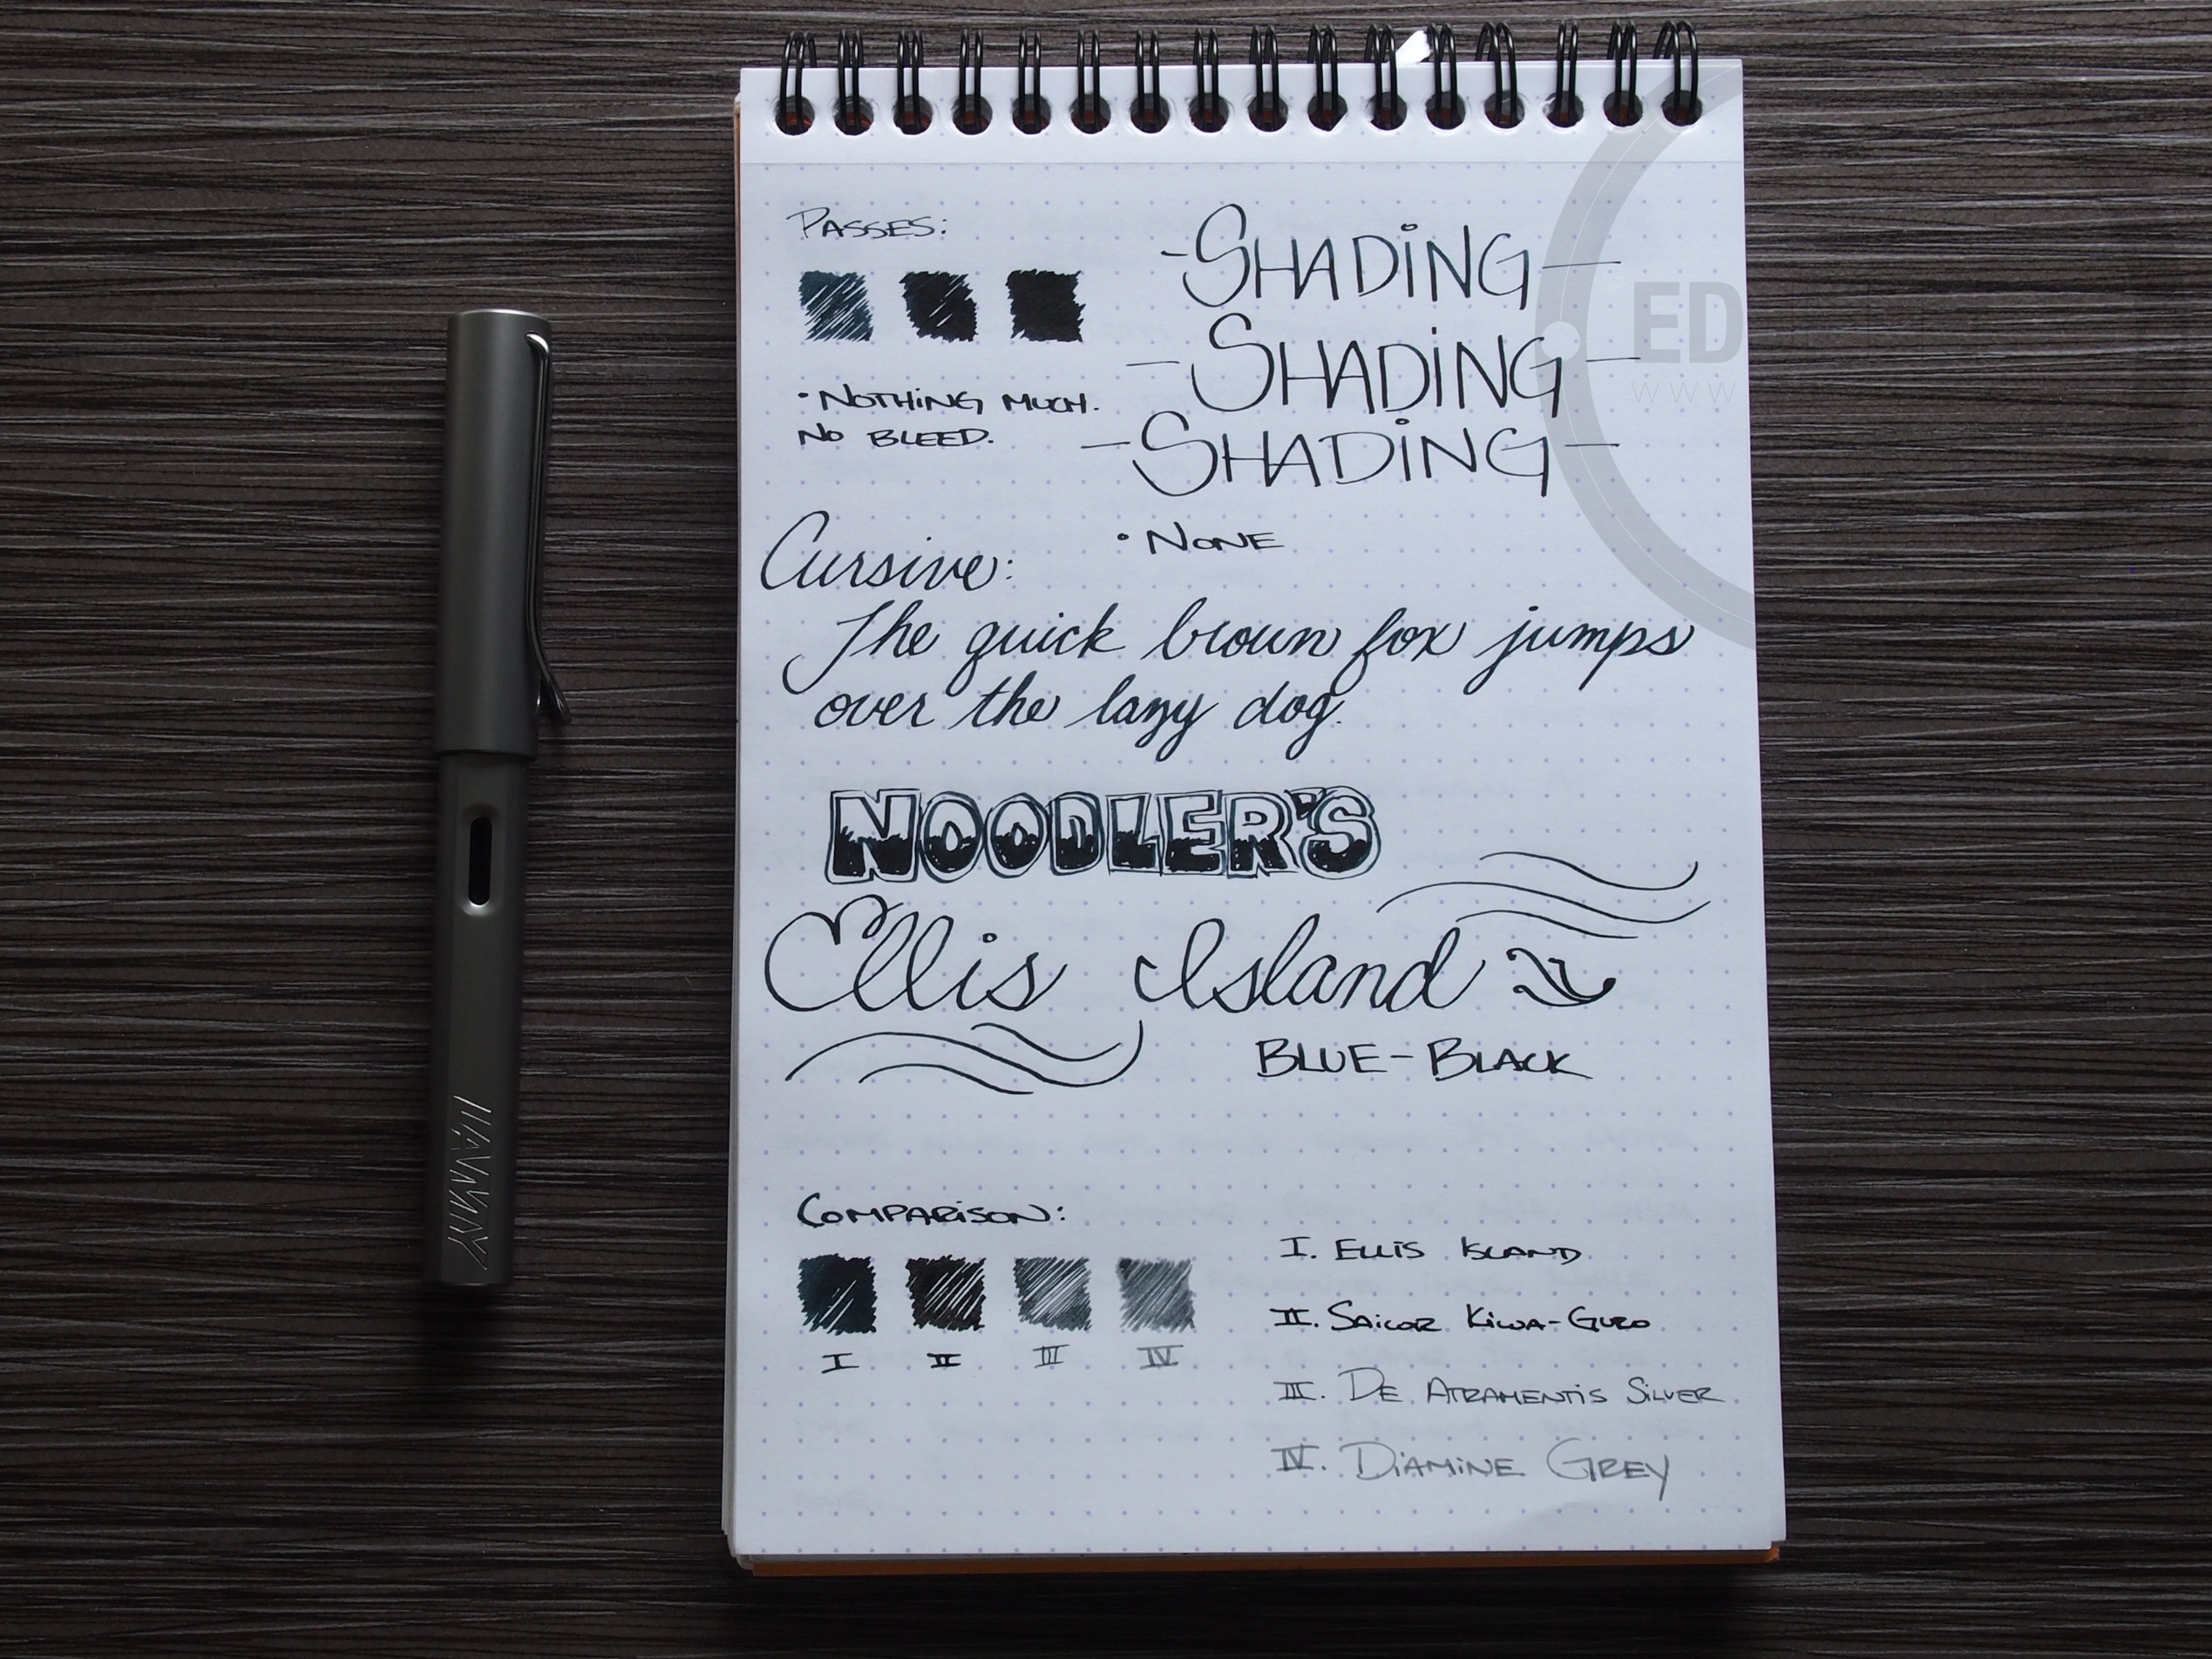 PASSES:
-SHADING-
-SHADING-
-SHADING-
• NOTHING MUCH.
NO BLEED.
• NONE
Cursive:
The quick brown fox jumps
over the lazy dog.
NOODLER'S
Ellis Island
BLUE-BLACK
COMPARISON:
I II III IV
I. ELLIS ISLAND
II. SAILOR KIWA-GURO
III. DE ATRAMENTIS SILVER
IV. DIAMINE GREY
ED
WWW